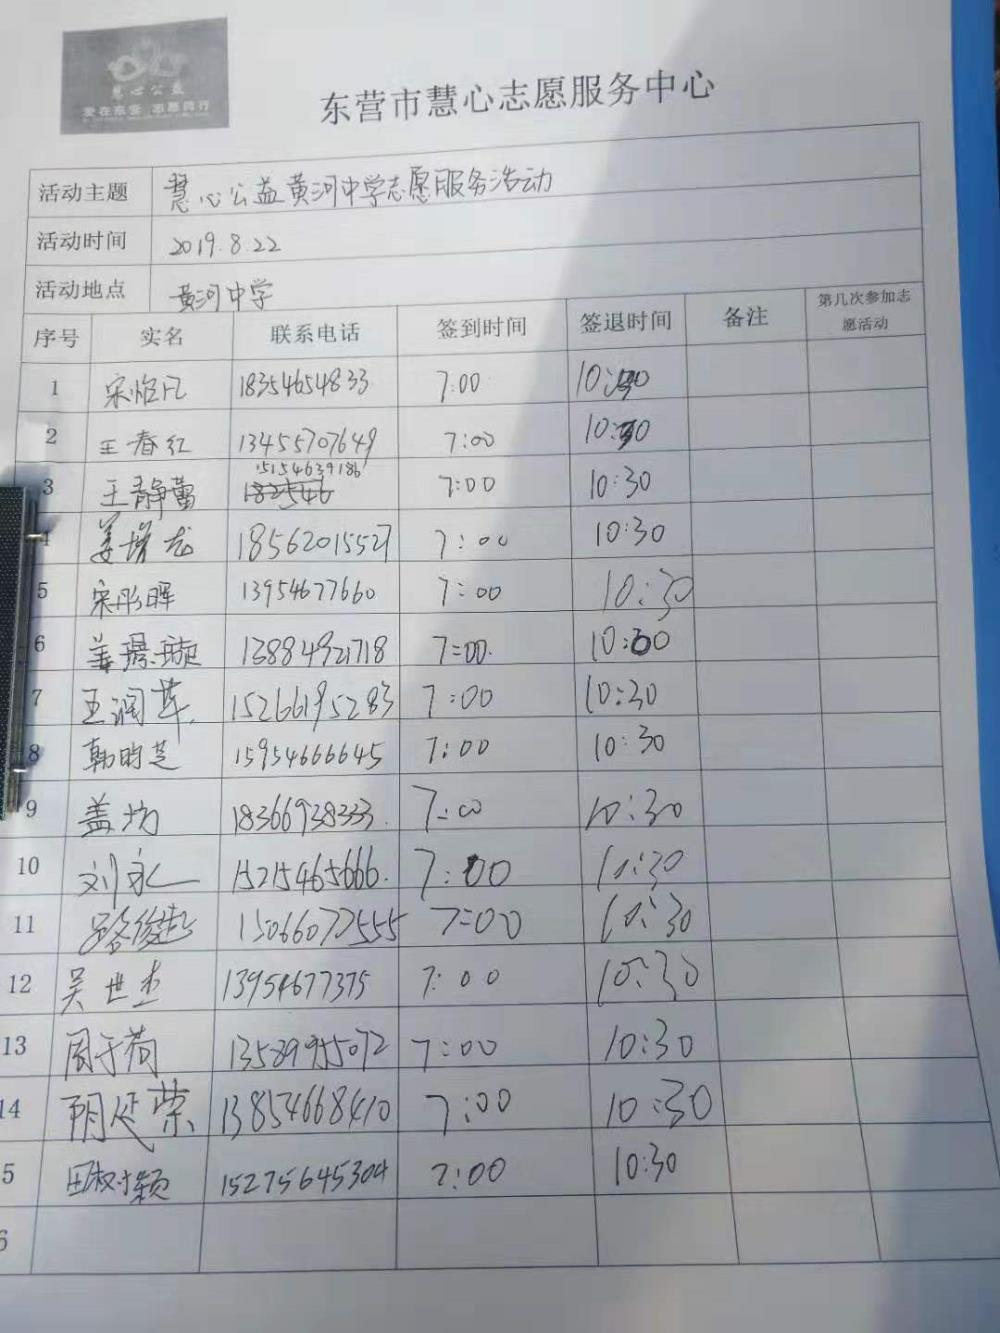 慧心公益
爱在东营 志愿同行
东营市慧心志愿服务中心
活动主题 慧心公益黄河中学志愿服务活动
活动时间 2019.8.22
活动地点 黄河中学
序号 实名 联系电话 签到时间 签退时间 备注 第几次参加志愿活动
1 宋焰凡 18354654833 7:00 10:30
2 王春红 13455707649 7:00 10:30
15154639186
3 王静蕾 182546 7:00 10:30
4 姜增龙 18562015527 7:00 10:30
5 宋彤晖 13954677660 7:00 10:30
6 姜璟璇 13884921718 7:00. 10:30
7 王润苹 15266195283 7:00 10:30
8 韩昀芝 15954666645 7:00 10:30
9 盖均 18366938333. 7:00 10:30
10 刘永 15215465666. 7:00 10:30
11 路俊起 15066077555 7:00 10:30
12 吴世杰 13954677375 7:00 10:30
13 周于荷 13589955072 7:00 10:30
14 阴延荣 13854668410 7:00 10:30
5 田树颖 15275645304 7:00 10:30
6